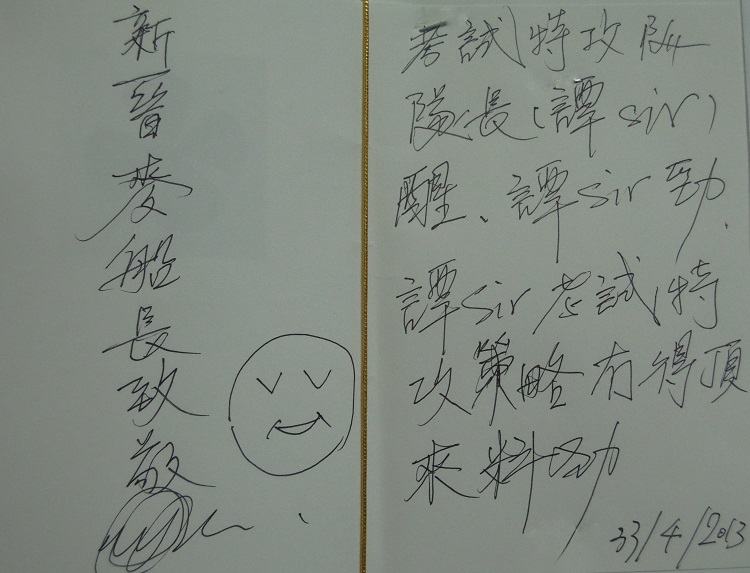 考試特攻隊
隊長(譚sir)
醒、譚sir勁、
譚sir考試特
攻策略有得頂
來料勁
33/4/2013
新晉麥船長致敬